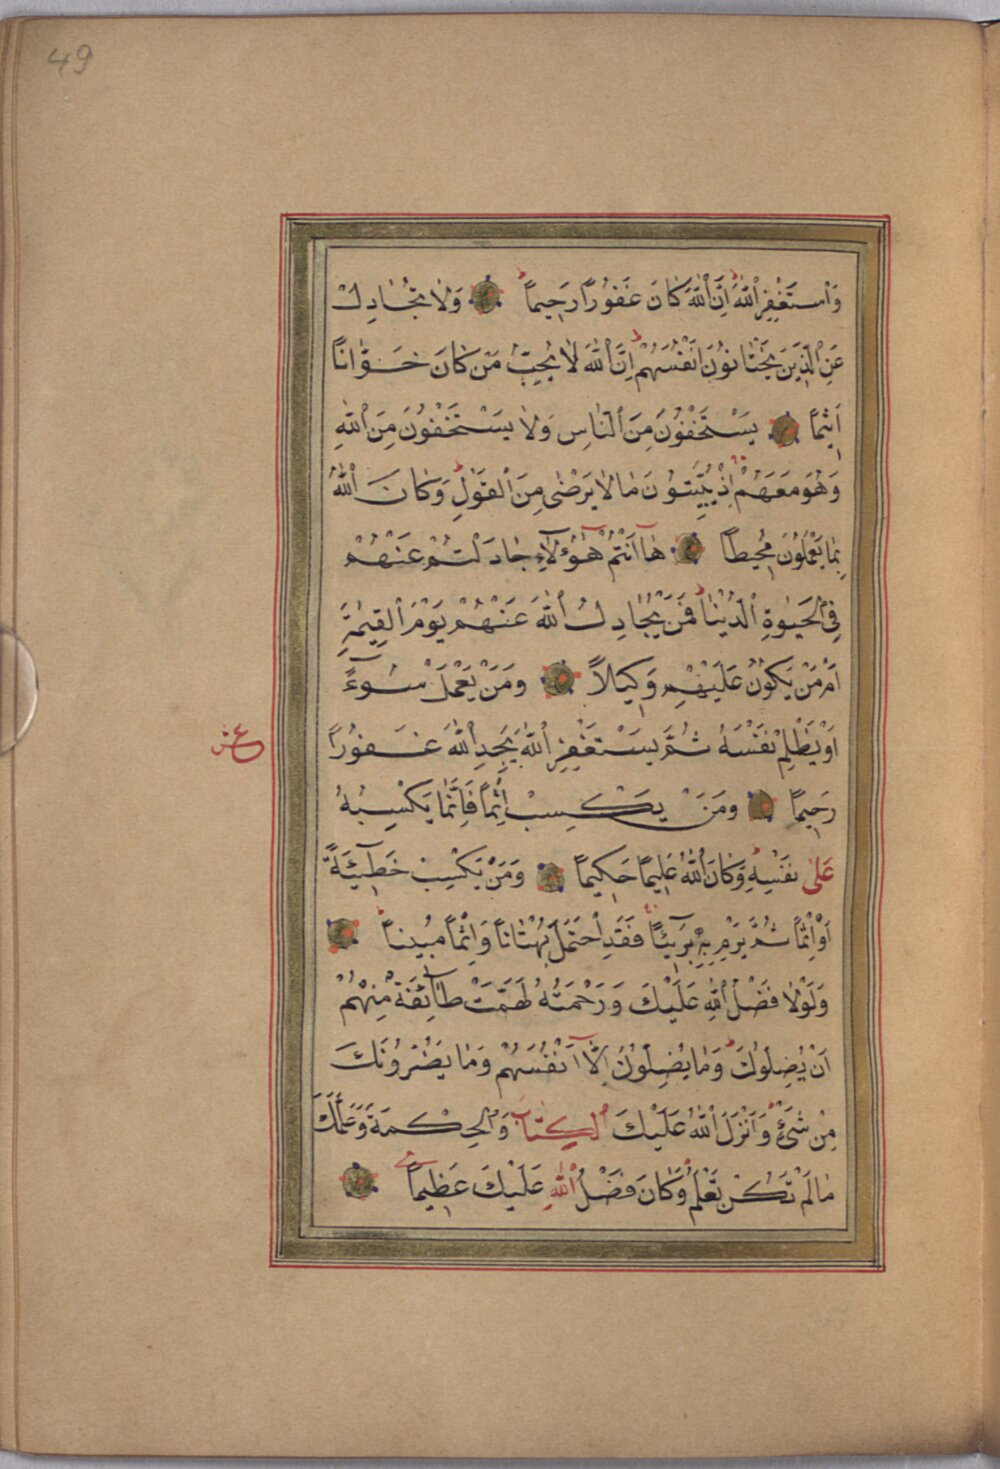 49
وَاسْتَغْفِرِ اللّٰهَ اِنَّ اللّٰهَ كَانَ غَفُورًا رَحِيمًا وَلَا تُجَادِلْ
عَنِ الَّذِينَ يَخْتَانُونَ اَنْفُسَهُمْ اِنَّ اللّٰهَ لَا يُحِبُّ مَنْ كَانَ خَوَّانًا
اَثِيمًا يَسْتَخْفُونَ مِنَ النَّاسِ وَلَا يَسْتَخْفُونَ مِنَ اللّٰهِ
وَهُوَ مَعَهُمْ اِذْ يُبَيِّتُونَ مَا لَا يَرْضٰى مِنَ الْقَوْلِ وَكَانَ اللّٰهُ
بِمَا يَعْمَلُونَ مُحِيطًا هَٓا اَنْتُمْ هٰٓؤُلَٓاءِ جَادَلْتُمْ عَنْهُمْ
فِي الْحَيٰوةِ الدُّنْيَا فَمَنْ يُجَادِلُ اللّٰهَ عَنْهُمْ يَوْمَ الْقِيٰمَةِ
اَمْ مَنْ يَكُونُ عَلَيْهِمْ وَكِيلًا وَمَنْ يَعْمَلْ سُٓوءًا
اَوْ يَظْلِمْ نَفْسَهُ ثُمَّ يَسْتَغْفِرِ اللّٰهَ يَجِدِ اللّٰهَ غَفُورًا
عشر
رَحِيمًا وَمَنْ يَكْسِبْ اِثْمًا فَاِنَّمَا يَكْسِبُهُ
عَلٰى نَفْسِهِ وَكَانَ اللّٰهُ عَلِيمًا حَكِيمًا وَمَنْ يَكْسِبْ خَطِٓيئَةً
اَوْ اِثْمًا ثُمَّ يَرْمِ بِهِ بَرِٓيئًا فَقَدِ احْتَمَلَ بُهْتَانًا وَاِثْمًا مُبِينًا
وَلَوْلَا فَضْلُ اللّٰهِ عَلَيْكَ وَرَحْمَتُهُ لَهَمَّتْ طَٓائِفَةٌ مِنْهُمْ
اَنْ يُضِلُّوكَ وَمَا يُضِلُّونَ اِلَّٓا اَنْفُسَهُمْ وَمَا يَضُرُّونَكَ
مِنْ شَيْءٍ وَاَنْزَلَ اللّٰهُ عَلَيْكَ الْكِتَابَ وَالْحِكْمَةَ وَعَلَّمَكَ
مَا لَمْ تَكُنْ تَعْلَمُ وَكَانَ فَضْلُ اللّٰهِ عَلَيْكَ عَظِيمًا